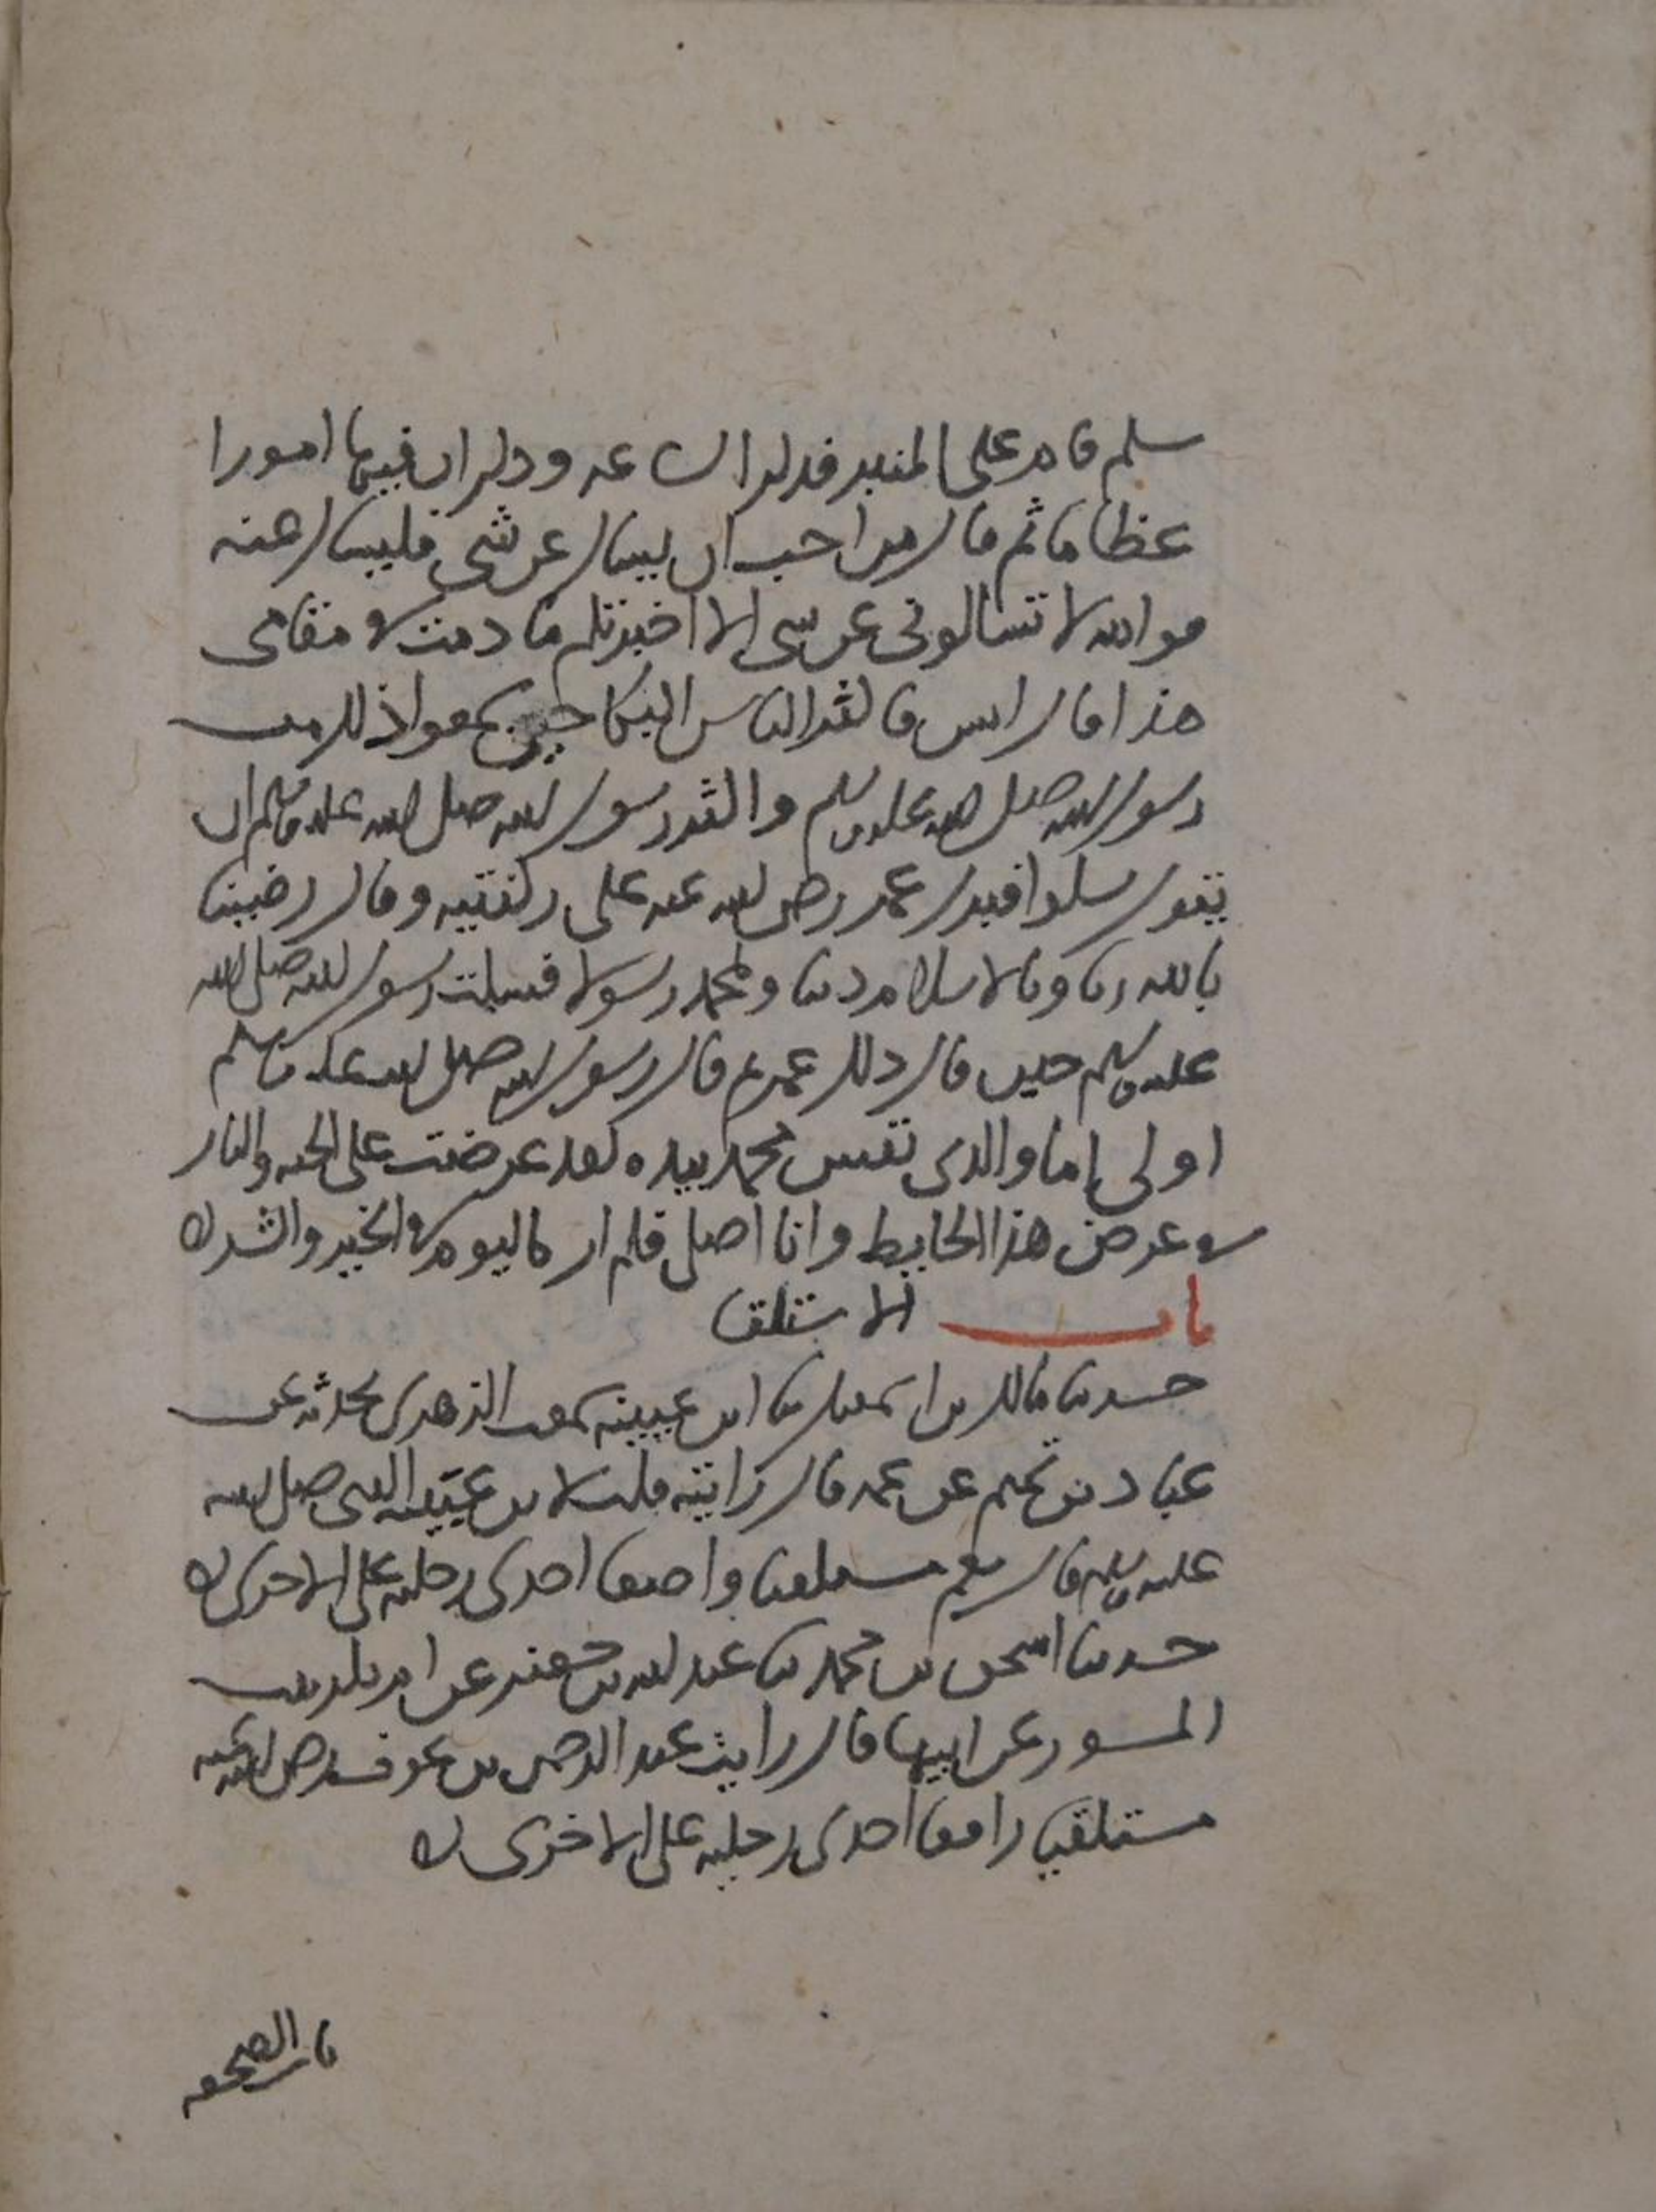 سلم قام على المنبر فذكر الساعه وذكر ان فيها امورا
عظاما ثم قال من احب ان يسال عن شي فليسال عنه
فوالله لا تسالونى عن شى الا اخبرتكم ما دمت فى مقامى
هذا قال انس فاكثر الناس البكا حين سمعوا ذلك من
رسول الله صلى الله عليه وسلم واكثر رسول الله صلى الله عليه وسلم ان
يقول سلوا فبرك عمر رضى الله عنه على ركبتيه وقال رضينا
بالله ربا وبالاسلام دينا وبمحمد رسولا فسكت رسول الله صلى الله
عليه وسلم حين قال ذلك عمر ثم قال رسول الله صلى الله عليه وسلم
اولى اما والذى نفس محمد بيده لقد عرضت على الجنه والنار
فى عرض هذا الحايط وانا اصلى فلم ار كاليوم فى الخير والشر ه
باب الاستلقا
حدثنا مالك بن اسمعيل ثنا ابن عيينه سمعت الزهرى يحدثه عن
عباد بن تميم عن عمه قال رايته قلت لابن عيينه النبى صلى الله
عليه وسلم قال نعم مستلقيا واضعا احدى رجليه على الاخرى ه
حدثنا اسحق بن محمد ثنا عبد الله بن جعفر عن ام بكر بنت
المسور عن ابيها قال رايت عبد الرحمن بن عوف رضى الله عنه
مستلقيا رافعا احدى رجليه على الاخرى ه